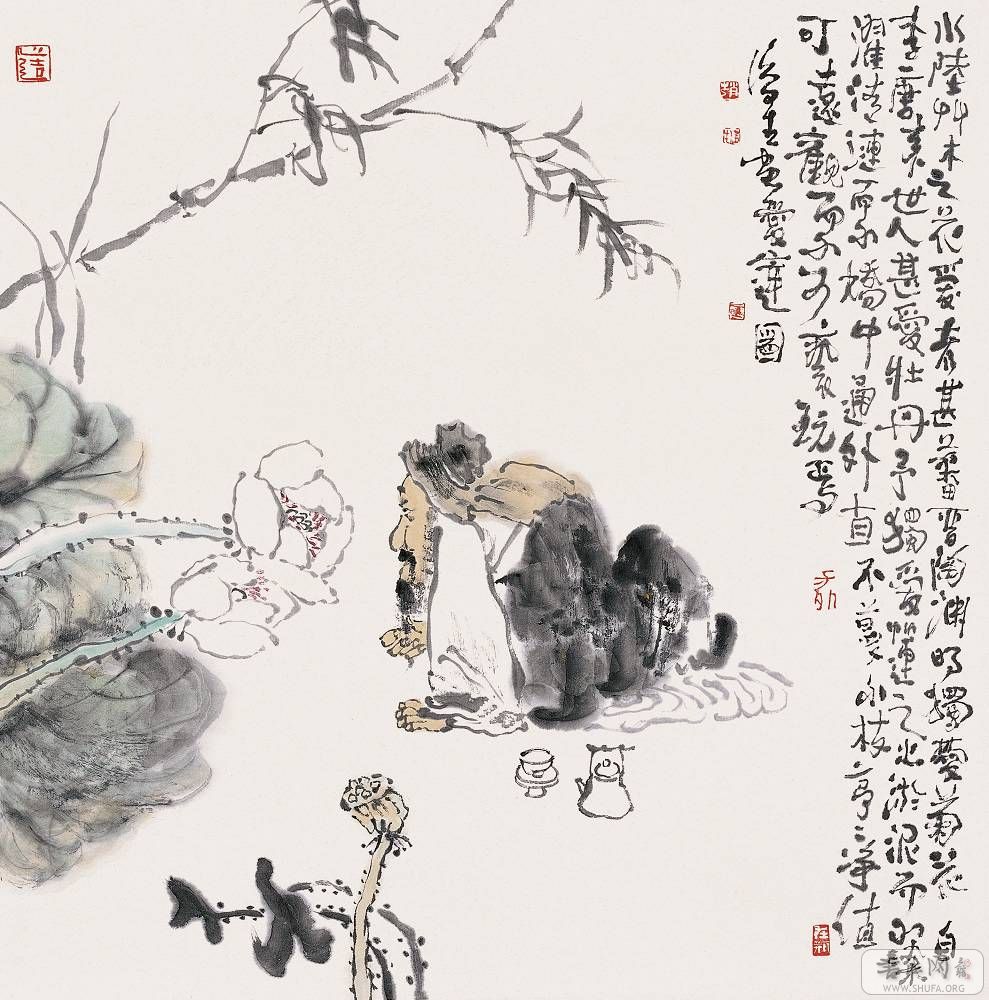 水陸艸木之花可愛者甚蕃晋陶渊明獨愛菊花自
李唐来世人甚愛牡丹予獨愛蓮之出淤泥而不染
濯清漣而不嬌中通外直不蔓不枝亭亭净值
可遠觀而不可褻玩焉
愛蓮圖
WWW.SHUFA.ORG